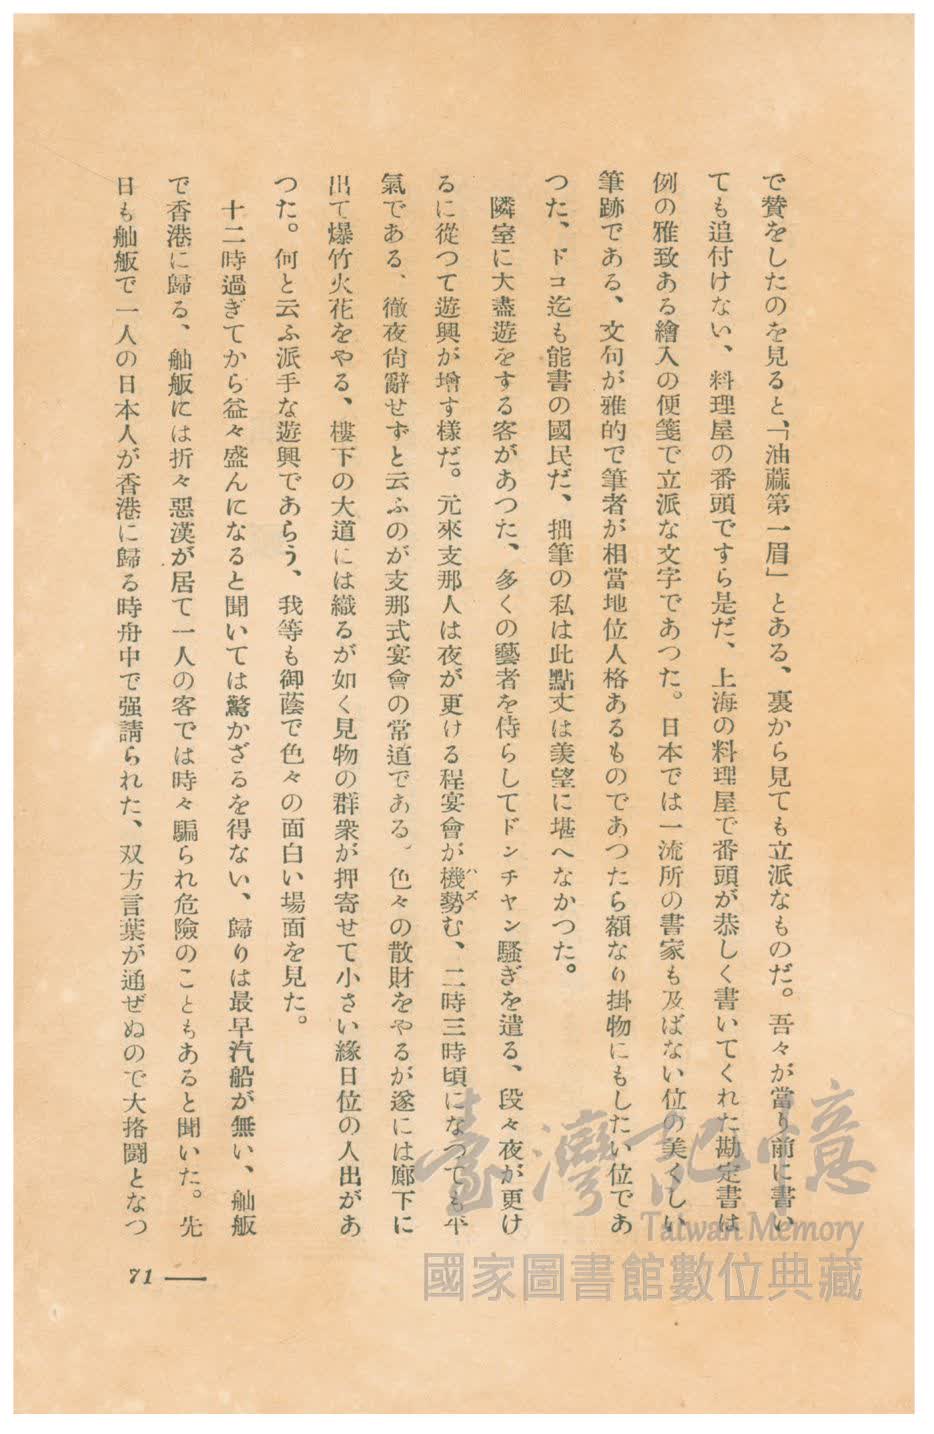 で賛をしたのを見ると、「油蔬第一眉」とある、裏から見ても立派なものだ。吾々が當り前に書い
ても追付けない、料理屋の番頭ですら是だ、上海の料理屋で番頭が恭しく書いてくれた勘定書は
例の雅致ある繪入の便箋で立派な文字であつた。日本では一流所の書家も及ばない位の美くしい
筆跡である、文句が雅的で筆者が相當地位人格あるものであつたら額なり掛物にもしたい位であ
つた、ドコ迄も能書の國民だ、拙筆の私は此點丈は羨望に堪へなかつた。
隣室に大盡遊をする客があつた、多くの藝者を侍らしてドンチヤン騷ぎを遣る、段々夜が更け
るに從つて遊興が增す樣だ。元來支那人は夜が更ける程宴會が機勢む、二時三時頃になつても平
ハズ
氣である、徹夜尙辭せずと云ふのが支那式宴會の常道である。色々の散財をやるが遂には廊下に
出て爆竹火花をやる、樓下の大道には織るが如く見物の群衆が押寄せて小さい緣日位の人出があ
つた。何と云ふ派手な遊興であらう、我等も御蔭で色々の面白い場面を見た。
十二時過ぎてから益々盛んになると聞いては驚かざるを得ない、歸りは最早汽船が無い、舢舨
で香港に歸る、舢舨には折々惡漢が居て一人の客では時々騙られ危險のこともあると聞いた。先
日も舢舨で一人の日本人が香港に歸る時舟中で强請られた、双方言葉が通ぜぬので大挌鬪となつ
71
臺灣記憶
Taiwan Memory
國家圖書館數位典藏